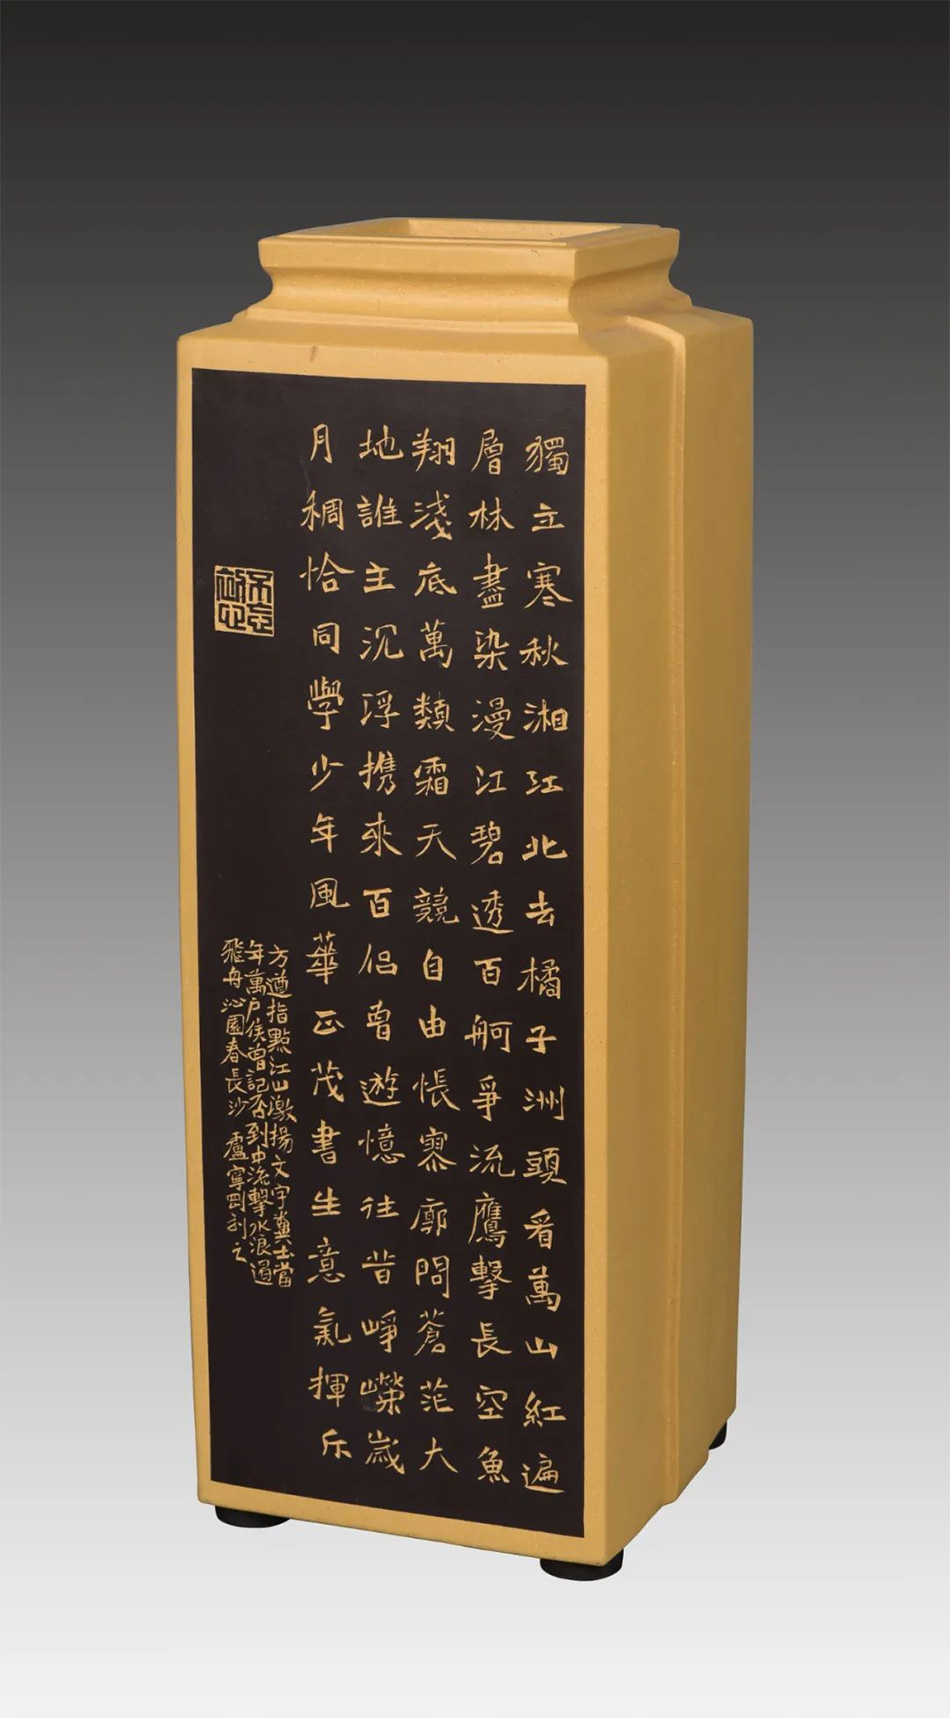 獨立寒秋湘江北去橘子洲頭看萬山紅遍
層林盡染漫江碧透百舸爭流鷹擊長空魚
翔淺底萬類霜天競自由悵寥廓問蒼茫大
地誰主沉浮携來百侣曾遊憶往昔崢嶸歲
月稠恰同學少年風華正茂書生意氣揮斥
方遒指點江山激揚文字糞土當
年萬户侯曾記否到中流擊水浪遏
飛舟沁園春長沙 盧寧剛刻之